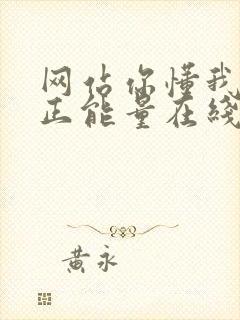 网站你懂我
正能量在线
黄永